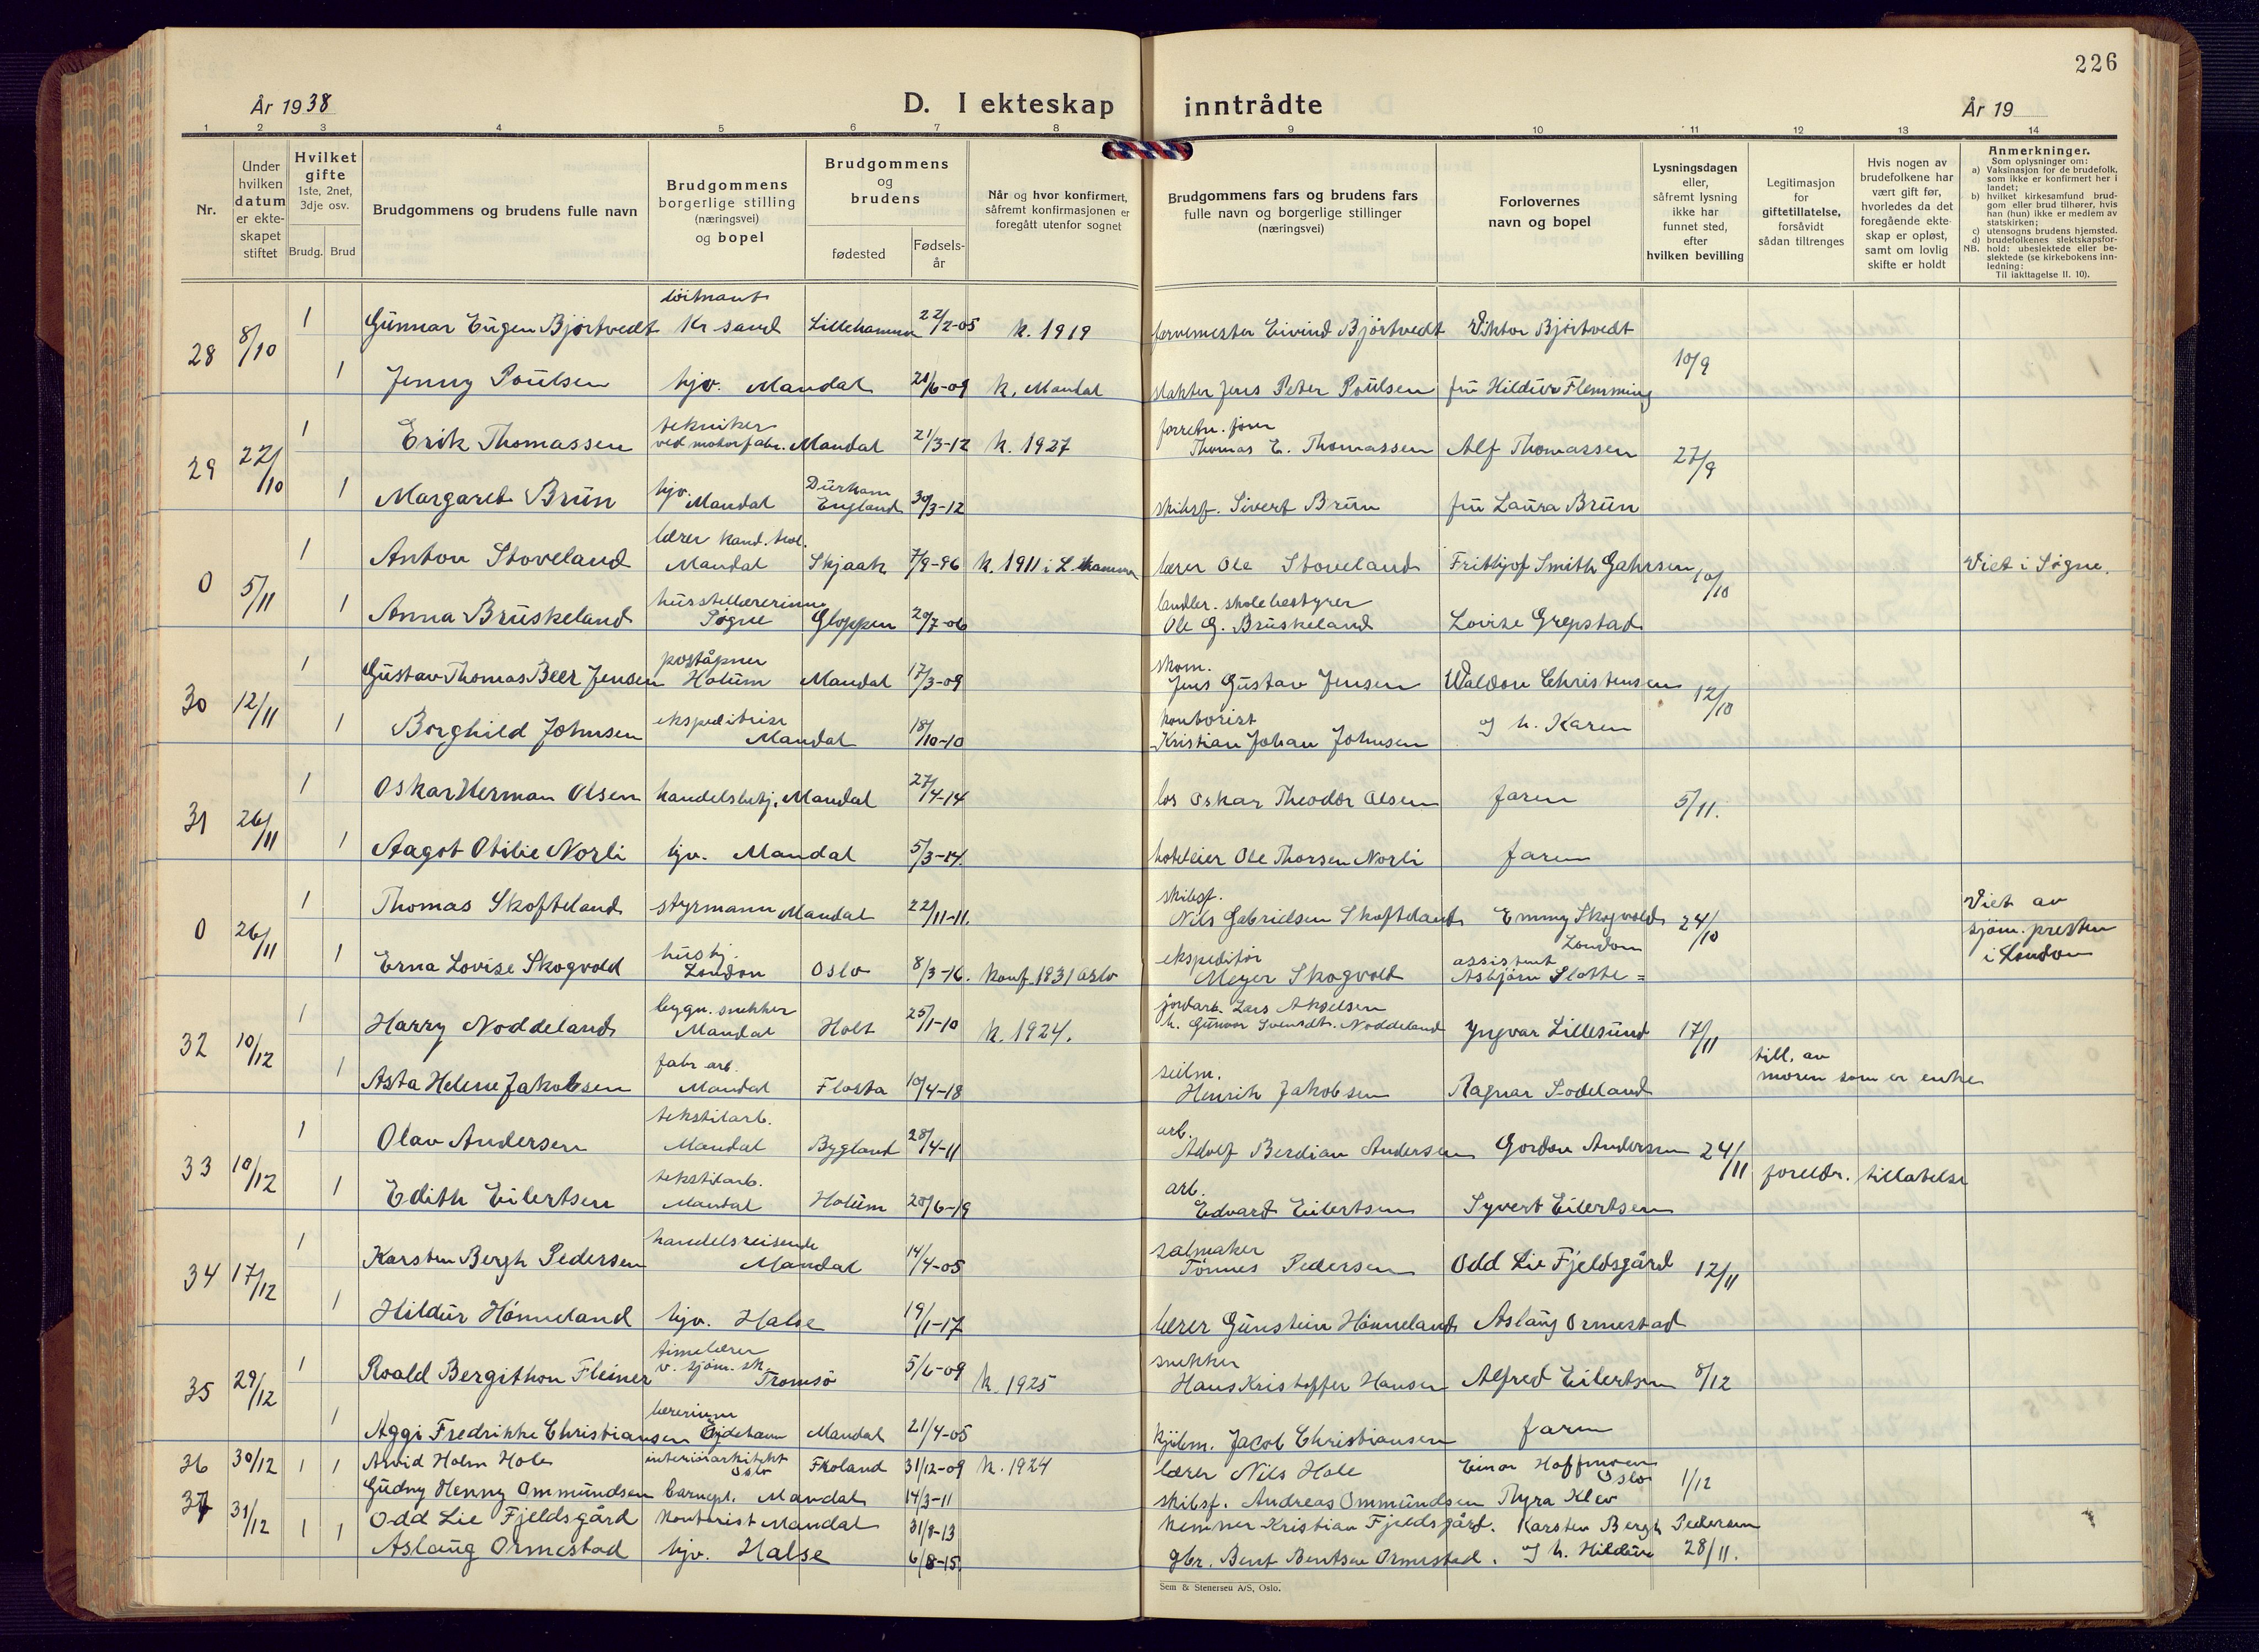 226
År 1938
D. I ekteskap inntrådte
År 19
1 2 3 4 5 6 7 8 9 10 11 12 13 14
Nr.
Under hvilken datum er ekteskapet stiftet
Hvilket gifte 1ste, 2net, 3dje osv.
Brudg. Brud
Brudgommens og brudens fulle navn
Brudgommens borgerlige stilling (næringsvei) og bopel
Brudgommens og brudens
fødested
Fødselsår
Når og hvor konfirmert, såfremt konfirmasjonen er foregått utenfor sognet
Brudgommens fars og brudens fars fulle navn og borgerlige stillinger (næringsvei)
Forlovernes navn og bopel
Lysningsdagen eller, såfremt lysning ikke har funnet sted, efter hvilken bevilling
Legitimasjon for giftetillatelse, forsåvidt sådan tiltrenges
Hvis nogen av brudefolkene har vært gift før, hvorledes da det foregående ekteskap er opløst, samt om lovlig skifte er holdt
Anmerkninger.
Som oplysninger om:
a) Vaksinasjon for de brudefolk, som ikke er konfirmert her i landet;
b) hvilket kirkesamfund brudgom eller brud tilhører, hvis han (hun) ikke er medlem av statskirken;
c) utensogns brudens hjemsted.
d) brudefolkenes slektskapsforhold: ubeslektede eller beslektede (se kirkebokens innledning:
NB. Til iakttagelse II. 10).
28 8/10 1 Gunnar Eugen Bjørtvedt løitnant Kr sand Lillehammer 22/2-05 k. 1919 Eivind Bjørtvedt Viktor Bjørtvedt 10/9
1 Jenny Poulsen hjv. Mandal 21/6-09 k. Mandal slakter Jens Peter Poulsen fru Hildur Flemming
29 22/10 1 Erik Thomassen tekniker ved motorfabr. Mandal 21/3-12 k. 1927 forretn. fører Thomas E. Thomassen Alf Thomassen 27/9
1 Margaret Brun hjv. Mandal Durham England 30/3-12 skibsf. Sivert Brun fru Laura Brun
0 5/11 1 Anton Stoveland lærer kand. teol. Mandal Skjaak 7/9-96 k. 1911 i L.hammer lærer Ole Stoveland Frithjof Smith Gahrsen 10/10 Viet i Søgne.
1 Anna Bruskeland husstellærerinne Søgne Gloppen 20/7-06 landbr. skolebestyrer Ole G. Bruskeland Lovise Grepstad
30 12/11 1 Gustav Thomas Beer Jensen poståpner Holum Mandal 17/3-09 skom. Jens Gustav Jensen Waldon Christensen 12/10
1 Borghild Johnsen ekspeditrise Mandal 18/10-10 kontorist Kristian Johan Johnsen og h. Karen
31 26/11 1 Oskar Herman Olsen handelsbetj. Mandal 27/4-14 los Oskar Theodor Olsen faren 5/11.
1 Aagot Otilie Norli hjv. Mandal 5/3-14. hoteleier Ole Thorsen Norli faren
0 26/11 1 Thomas Skofteland styrmann Mandal 22/11-11. skibsf. Nils Gabrielsen Skofteland Emmy Skogvold London 24/10 Viet av sjøm. presten i London
1 Erna Lovise Skogvold husbj. London Oslo 8/3-16. konf. 1931 Oslo ekspeditør Meyer Skogvold assistent Asbjørn Slotte =
32 10/12 1 Harry Noddeland bygn. snekker Mandal Holt 25/1-10 k. 1924. jordarb. Lars Akselsen h. Gunvor Svensdt. Noddeland Yngvar Lillesund 17/11
1 Asta Helene Jakobsen fabr arb. Mandal Flosta 10/4-18 seilm. Henrik Jakobsen Ragnar Sodeland till. av moren som er enke
33 10/12 1 Olav Andersen tekstilarb. Mandal Bygland 28/4-11 arb. Adolf Berdian Andersen Gordon Andersen 24/11 foreldr. tillatelse
1 Edith Eilertsen tekstilarb. Mandal Holum 20/6-19 arb. Edvard Eilertsen Syvert Eilertsen
34 17/12 1 Karsten Bergh Pedersen handelsreisende Mandal 14/4-05 salmaker Tønnes Pedersen Odd Lie Fjeldsgård 12/11
1 Hildur Hønneland hjv. Halse 19/1-17 lærer Gunstein Hønneland Aslaug Ormestad
35 29/12 1 Roald Bergithon Fleiner timelærer v. sjøm. sk. Tromsø 5/6-09 k. 1925 snekker Hans Kristoffer Hansen Alfred Eilertsen 8/12
1 Aggi Fredrikke Christiansen lærerinne Eydehavn Mandal 21/4-05 kjøbm. Jacob Christiansen faren
36 30/12 1 1 Arvid Holm Hole interiørarkitekt Oslo Froland 31/12-09 k. 1924 lærer Nils Hole Einar Hoffmoen Oslo 1/12
Gudny Henny Ommundsen barnepl. Mandal 14/3-11 skibsf. Andreas Ommundsen Thyra Klev
37 31/12 1 1 Odd Lie Fjeldsgård kontorist Mandal 31/8-13 kemner Kristian Fjeldsgård. Karsten Bergh Pedersen
Aslaug Ormestad hjv. Halse 6/8-15. gbr. Bent Bentsen Ormestad. og h. Hildur 28/11.
Sem & Stenersen A/S, Oslo.